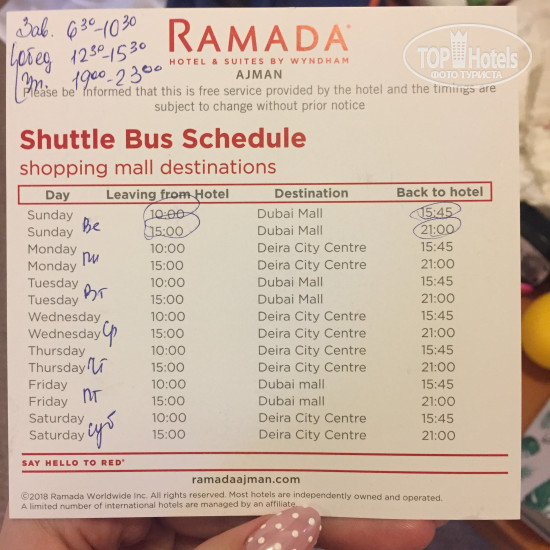 Зав. 6³⁰-10³⁰
Обед 12³⁰-15³⁰
Уж. 19⁰⁰-23⁰⁰
RAMADA®
HOTEL & SUITES BY WYNDHAM
AJMAN
TOPHotels
ФОТО ТУРИСТА
Please be informed that this is free service provided by the hotel and the timings are
subject to change without prior notice
Shuttle Bus Schedule
shopping mall destinations
Day Leaving from Hotel Destination Back to hotel
Sunday 10:00 Dubai Mall 15:45
Sunday Вс 15:00 Dubai Mall 21:00
Monday 10:00 Deira City Centre 15:45
Monday Пн 15:00 Deira City Centre 21:00
Tuesday 10:00 Dubai Mall 15:45
Tuesday Вт 15:00 Dubai Mall 21:00
Wednesday 10:00 Deira City Centre 15:45
Wednesday Ср 15:00 Deira City Centre 21:00
Thursday 10:00 Deira City Centre 15:45
Thursday Чт 15:00 Deira City Centre 21:00
Friday 10:00 Dubai mall 15:45
Friday Пт 15:00 Dubai mall 21:00
Saturday 10:00 Deira City Centre 15:45
Saturday Суб 15:00 Deira City Centre 21:00
SAY HELLO TO RED®
ramadaajman.com
©2018 Ramada Worldwide Inc. All rights reserved. Most hotels are independently owned and operated.
A limited number of international hotels are managed by an affiliate.